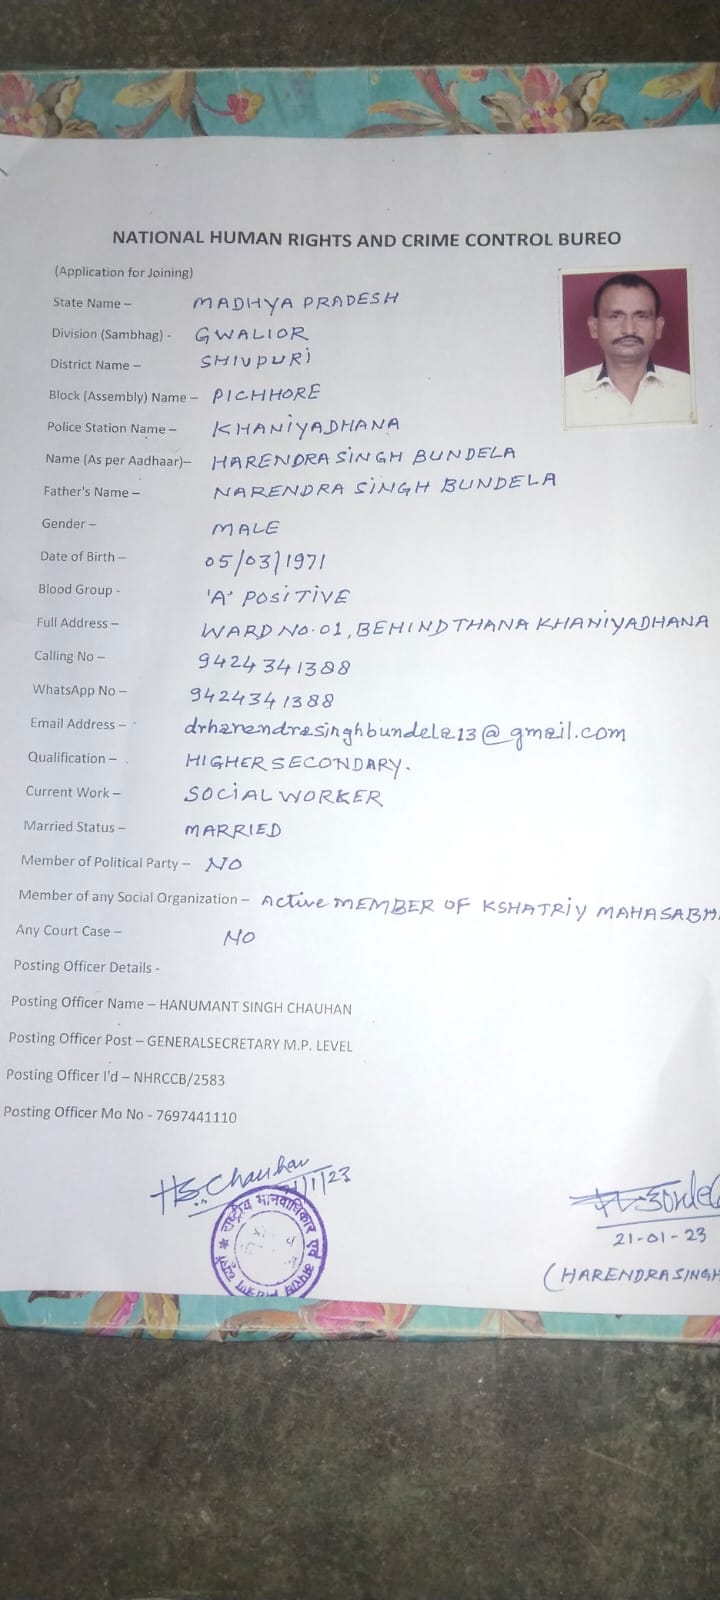 NATIONAL HUMAN RIGHTS AND CRIME CONTROL BUREO
(Application for Joining)
State Name – MADHYA PRADESH
Division (Sambhag) - GWALIOR
District Name – SHIVPURI
Block (Assembly) Name – PICHHORE
Police Station Name – KHANIYADHANA
Name (As per Aadhaar)– HARENDRA SINGH BUNDELA
Father's Name – NARENDRA SINGH BUNDELA
Gender – MALE
Date of Birth – 05/03/1971
Blood Group - 'A' POSITIVE
Full Address – WARD NO. 01, BEHIND THANA KHANIYADHANA
Calling No – 9424341388
WhatsApp No – 9424341388
Email Address – drharendrasinghbundela13@gmail.com
Qualification – HIGHER SECONDARY.
Current Work – SOCIAL WORKER
Married Status – MARRIED
Member of Political Party – NO
Member of any Social Organization – Active MEMBER OF KSHATRIY MAHASABH
Any Court Case – NO
Posting Officer Details -
Posting Officer Name – HANUMANT SINGH CHAUHAN
Posting Officer Post – GENERALSECRETARY M.P. LEVEL
Posting Officer I'd – NHRCCB/2583
Posting Officer Mo No - 7697441110
HS.Chauhan
/1/23
राष्ट्रीय मानवाधिकार एवं अपराध
21-01-23
(HARENDRA SINGH